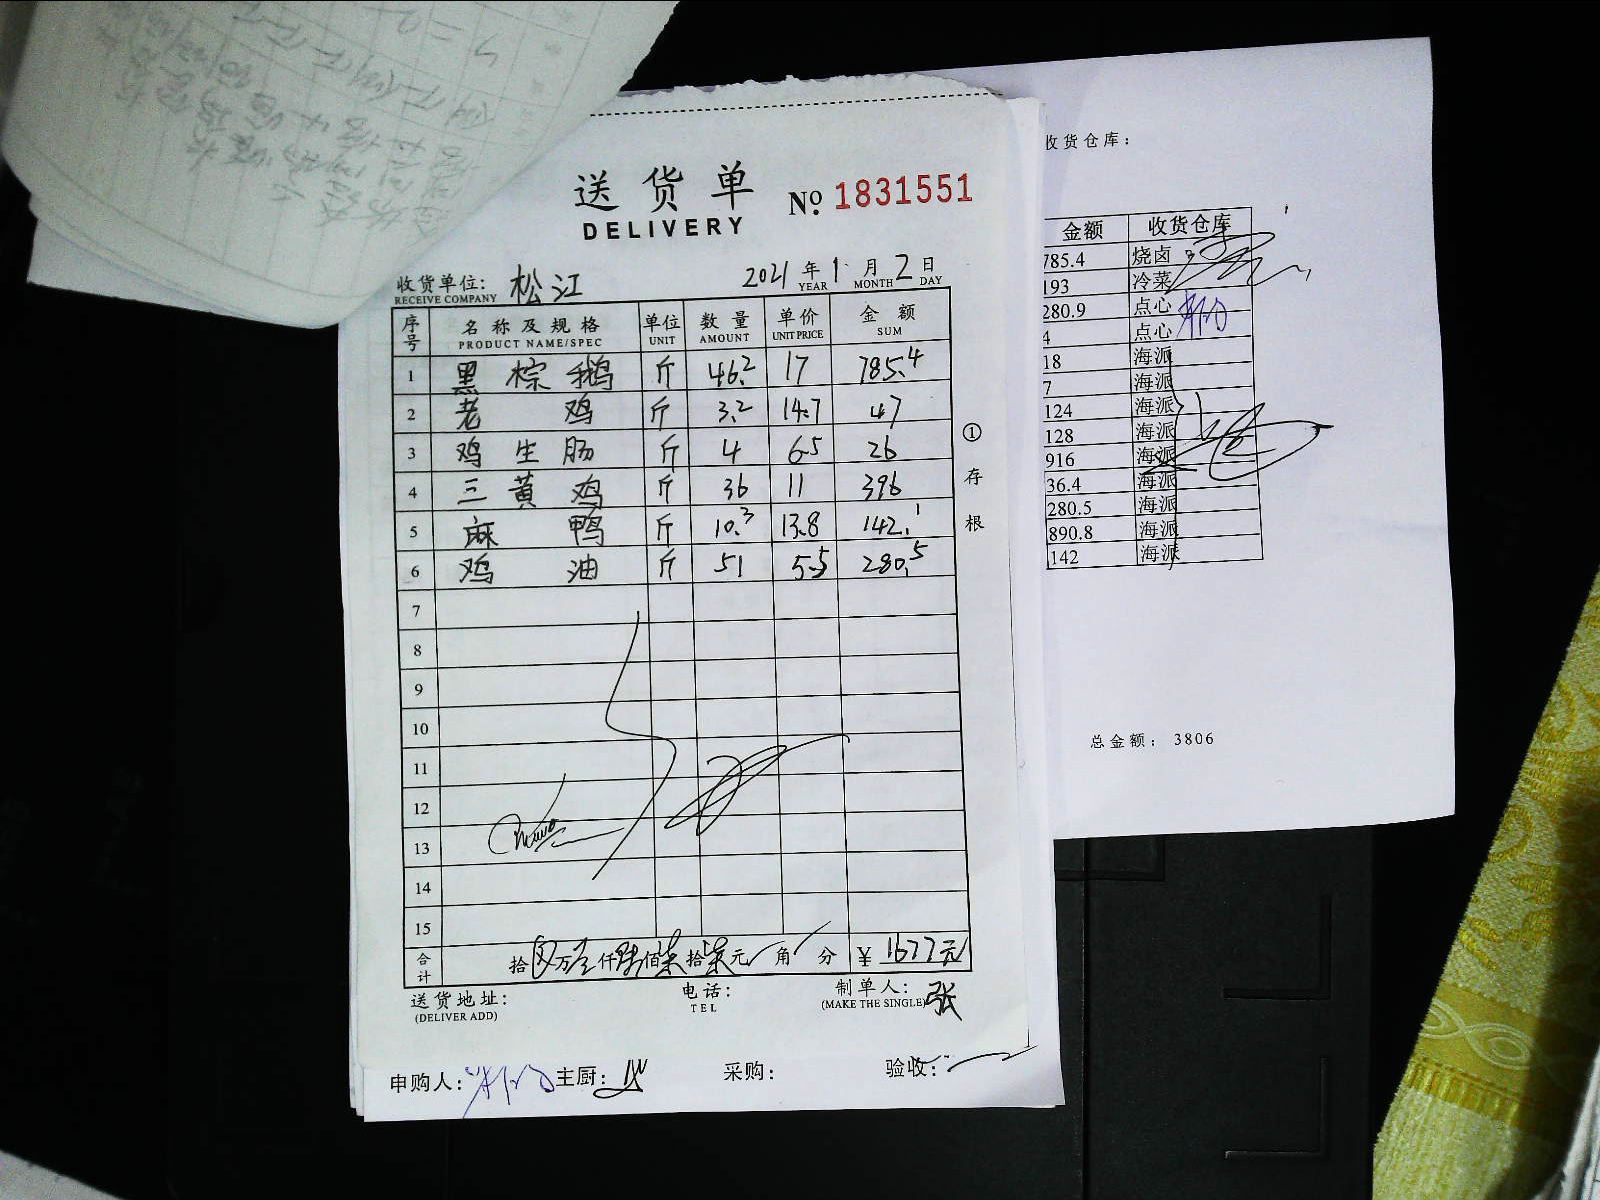 送货单
DELIVERY
№ 1831551
收货单位: 松江 2021年1月2日
RECEIVE COMPANY YEAR MONTH DAY
序号 名称及规格 单位 数量 单价 金额
PRODUCT NAME/SPEC UNIT AMOUNT UNIT PRICE SUM
1 黑棕鹅 斤 46.2 17 785.4
2 老鸡 斤 3.2 14.7 47
3 鸡生肠 斤 4 6.5 26
4 三黄鸡 斤 36 11 396
5 麻鸭 斤 10.3 13.8 142.1
6 鸡油 斤 51 5.5 280.5
7
8
9
10
11
12
13
14
15
合计 拾 万壹仟陆佰柒拾柒元 角 分 ¥ 1677元
①存根
送货地址: 电话: 制单人: 张
(DELIVER ADD) TEL (MAKE THE SINGLE)
申购人: 主厨: 采购: 验收:
收货仓库:
金额 收货仓库
785.4 烧卤
193 冷菜
280.9 点心
4 点心
18 海派
7 海派
124 海派
128 海派
916 海派
36.4 海派
280.5 海派
890.8 海派
142 海派
总金额: 3806